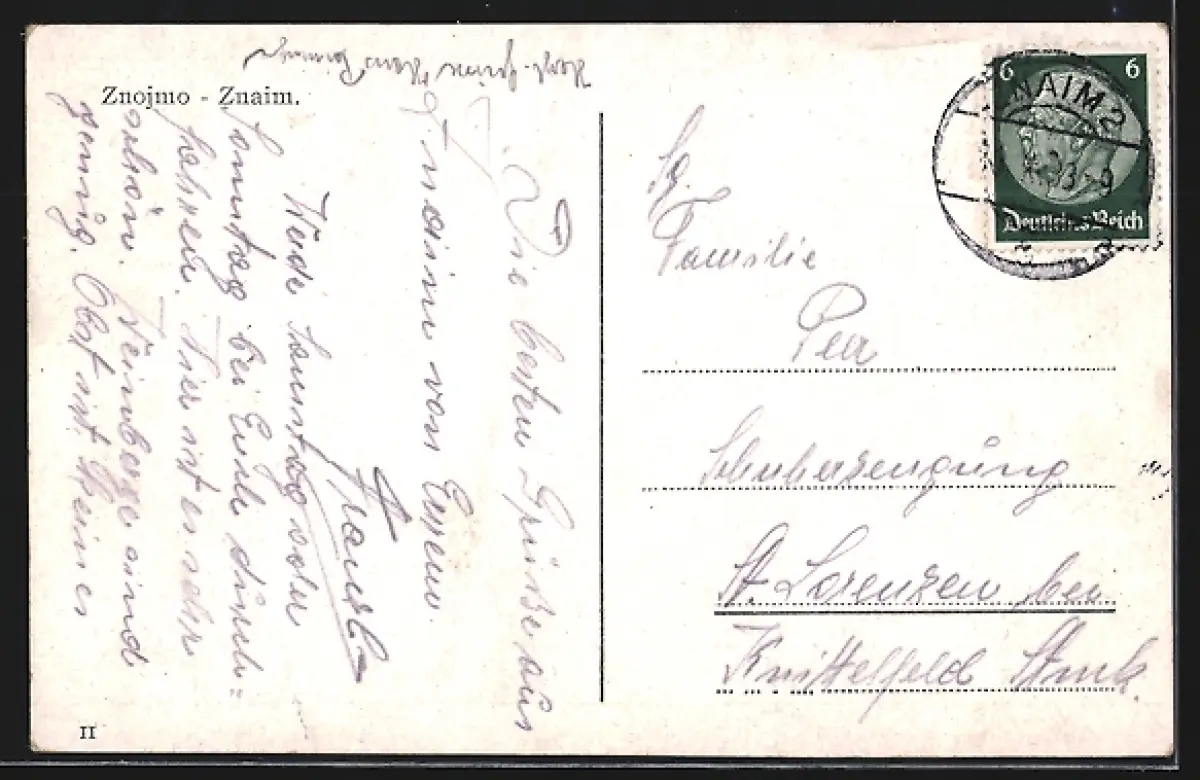 Znojmo - Znaim.
Die besten Grüße aus
Znaim von Eurem
Franzl
Werde Samstag oder
Sonntag bei Euch durch=
fahren. Hier ist es sehr
schön. Weinberge sind
genug. Obst ist keines
Fa.
Familie
Peer
Schuherzeugung
St. Lorenzen bei
Knittelfeld Stmk.
6 6
ZNAIM 2
Deutsches Reich
II